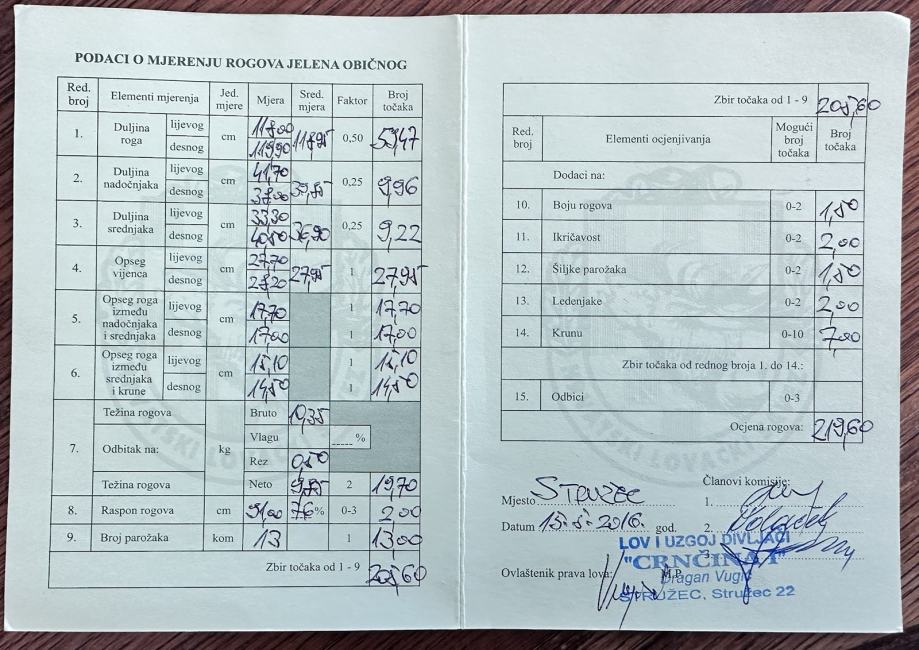 PODACI O MJERENJU ROGOVA JELENA OBIČNOG
Red. broj Elementi mjerenja Jed. mjere Mjera Sred. mjera Faktor Broj točaka
1. Duljina roga lijevog cm 118,00 118,95 0,50 59,47
desnog 119,90
2. Duljina nadočnjaka lijevog cm 41,70 39,85 0,25 9,96
desnog 38,00
3. Duljina srednjaka lijevog cm 33,30 36,90 0,25 9,22
desnog 40,50
4. Opseg vijenca lijevog cm 27,70 27,95 1 27,95
desnog 28,20
5. Opseg roga između nadočnjaka i srednjaka lijevog cm 17,70 1 17,70
desnog 17,00 1 17,00
6. Opseg roga između srednjaka i krune lijevog cm 15,10 1 15,10
desnog 14,50 1 14,50
7. Težina rogova kg Bruto 10,35
Odbitak na: Vlagu %
Rez 0,50
Težina rogova Neto 9,85 2 19,70
8. Raspon rogova cm 91,00 76% 0-3 2,00
9. Broj parožaka kom 13 1 13,00
Zbir točaka od 1 - 9 205,60
Zbir točaka od 1 - 9 205,60
Red. broj Elementi ocjenjivanja Mogući broj točaka Broj točaka
Dodaci na:
10. Boju rogova 0-2 1,50
11. Ikričavost 0-2 2,00
12. Šiljke parožaka 0-2 1,50
13. Ledenjake 0-2 2,00
14. Krunu 0-10 7,00
Zbir točaka od rednog broja 1. do 14.:
15. Odbici 0-3
Ocjena rogova: 219,60
Članovi komisije:
Mjesto STRUŽEC 1.
Datum 15.5.2016. god. 2.
LOV I UZGOJ DIVLJAČI
3.
"CRNČINA 1"
Ovlaštenik prava lova: M.P.
Dragan Vugić
STRUŽEC, Stružec 22